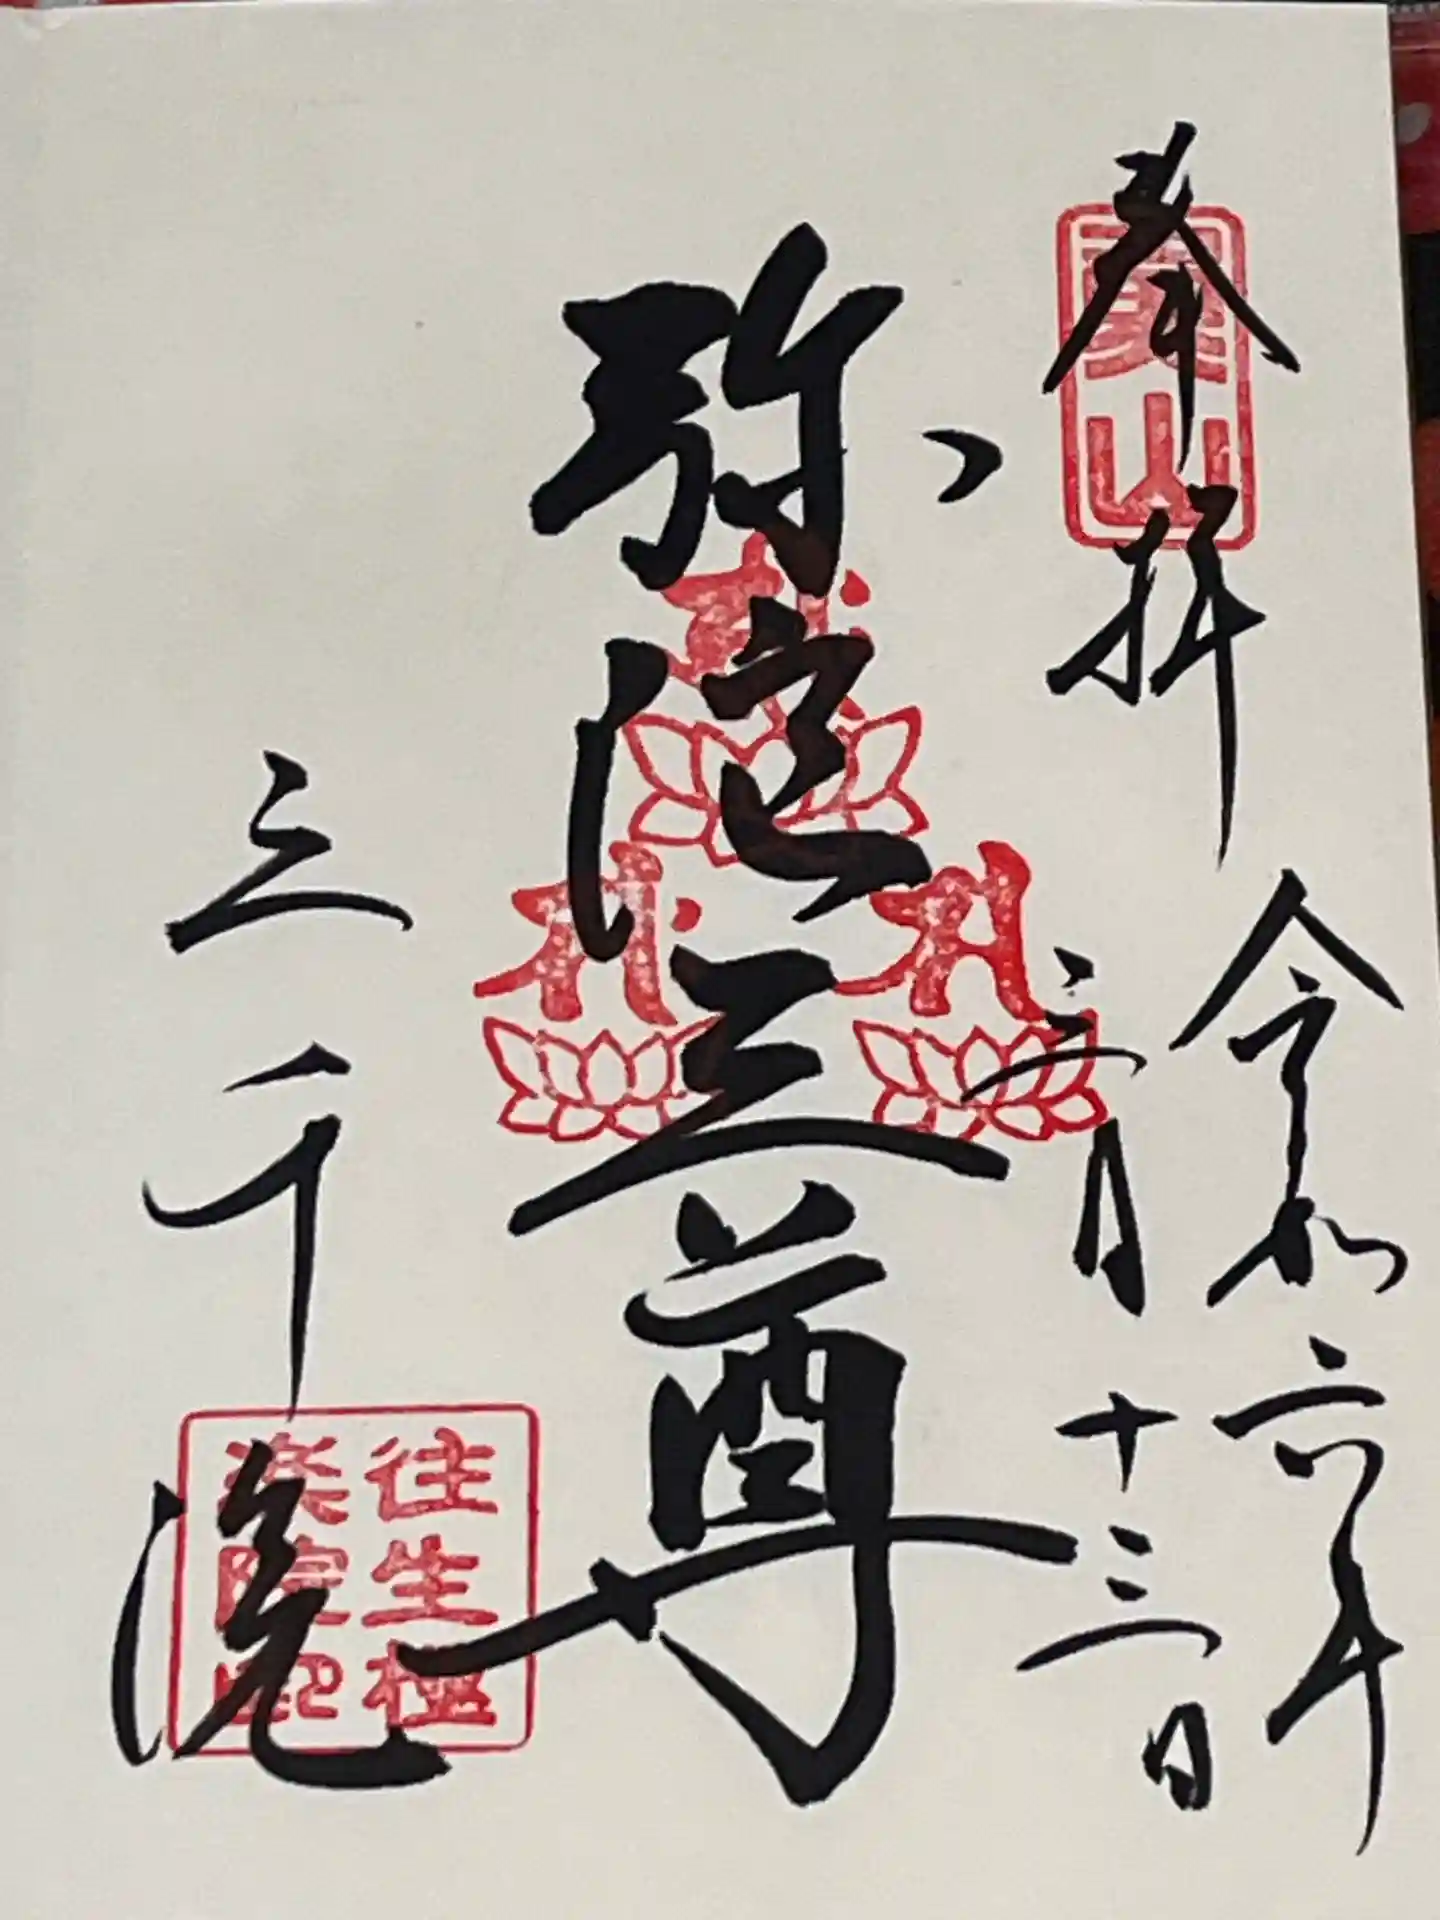 奉拝
令和六年
三月十三日
弥陀三尊
三千院
往生極
楽院印